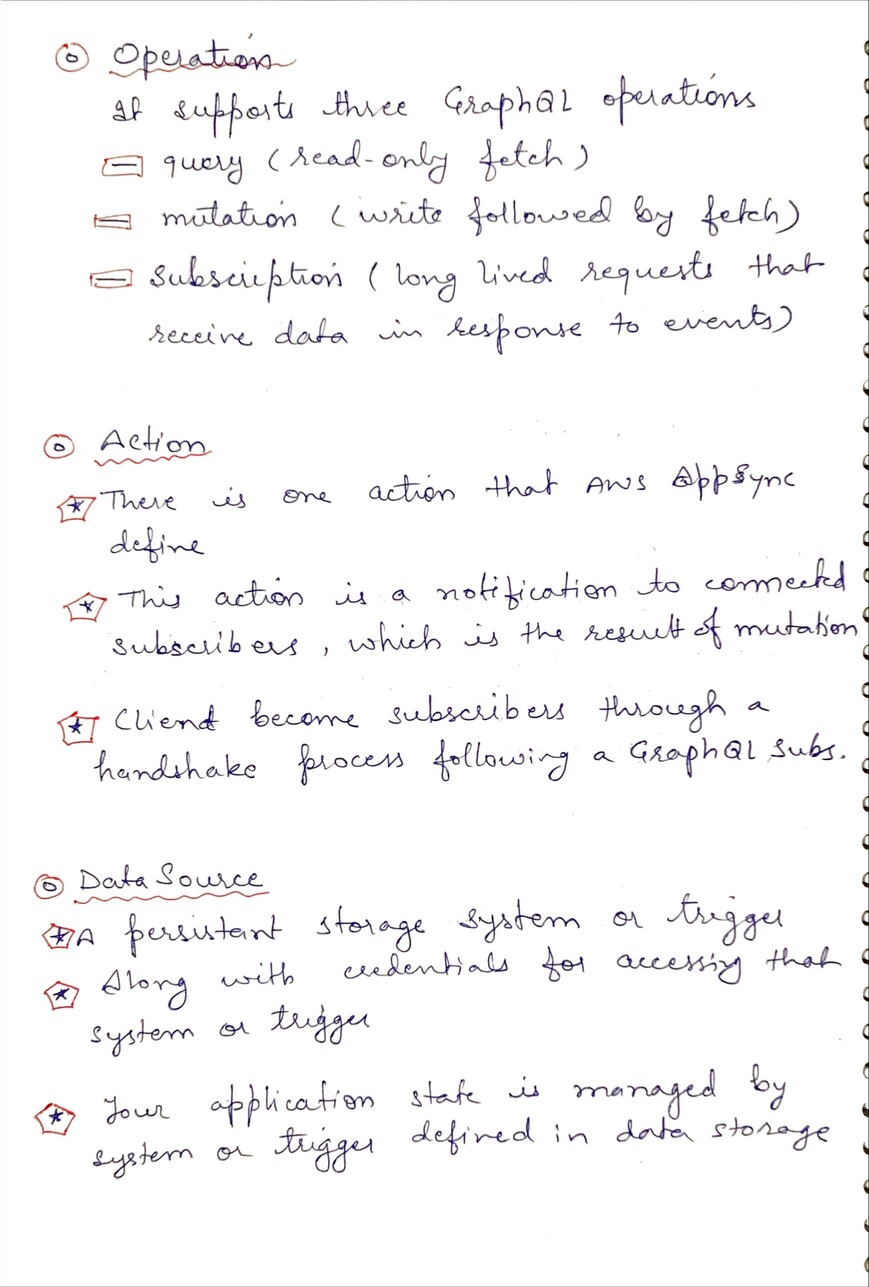 Operation
It supports three GraphQL operations
query (read-only fetch)
mutation (write followed by fetch)
Subscription (long lived requests that
receive data in response to events)
Action
There is one action that AWS AppSync
define
This action is a notification to connected
subscribers, which is the result of mutation
Client become subscribers through a
handshake process following a GraphQL subs.
Data Source
A persistant storage system or trigger
Along with credentials for accessing that
system or trigger
Your application state is managed by
system or trigger defined in data storage